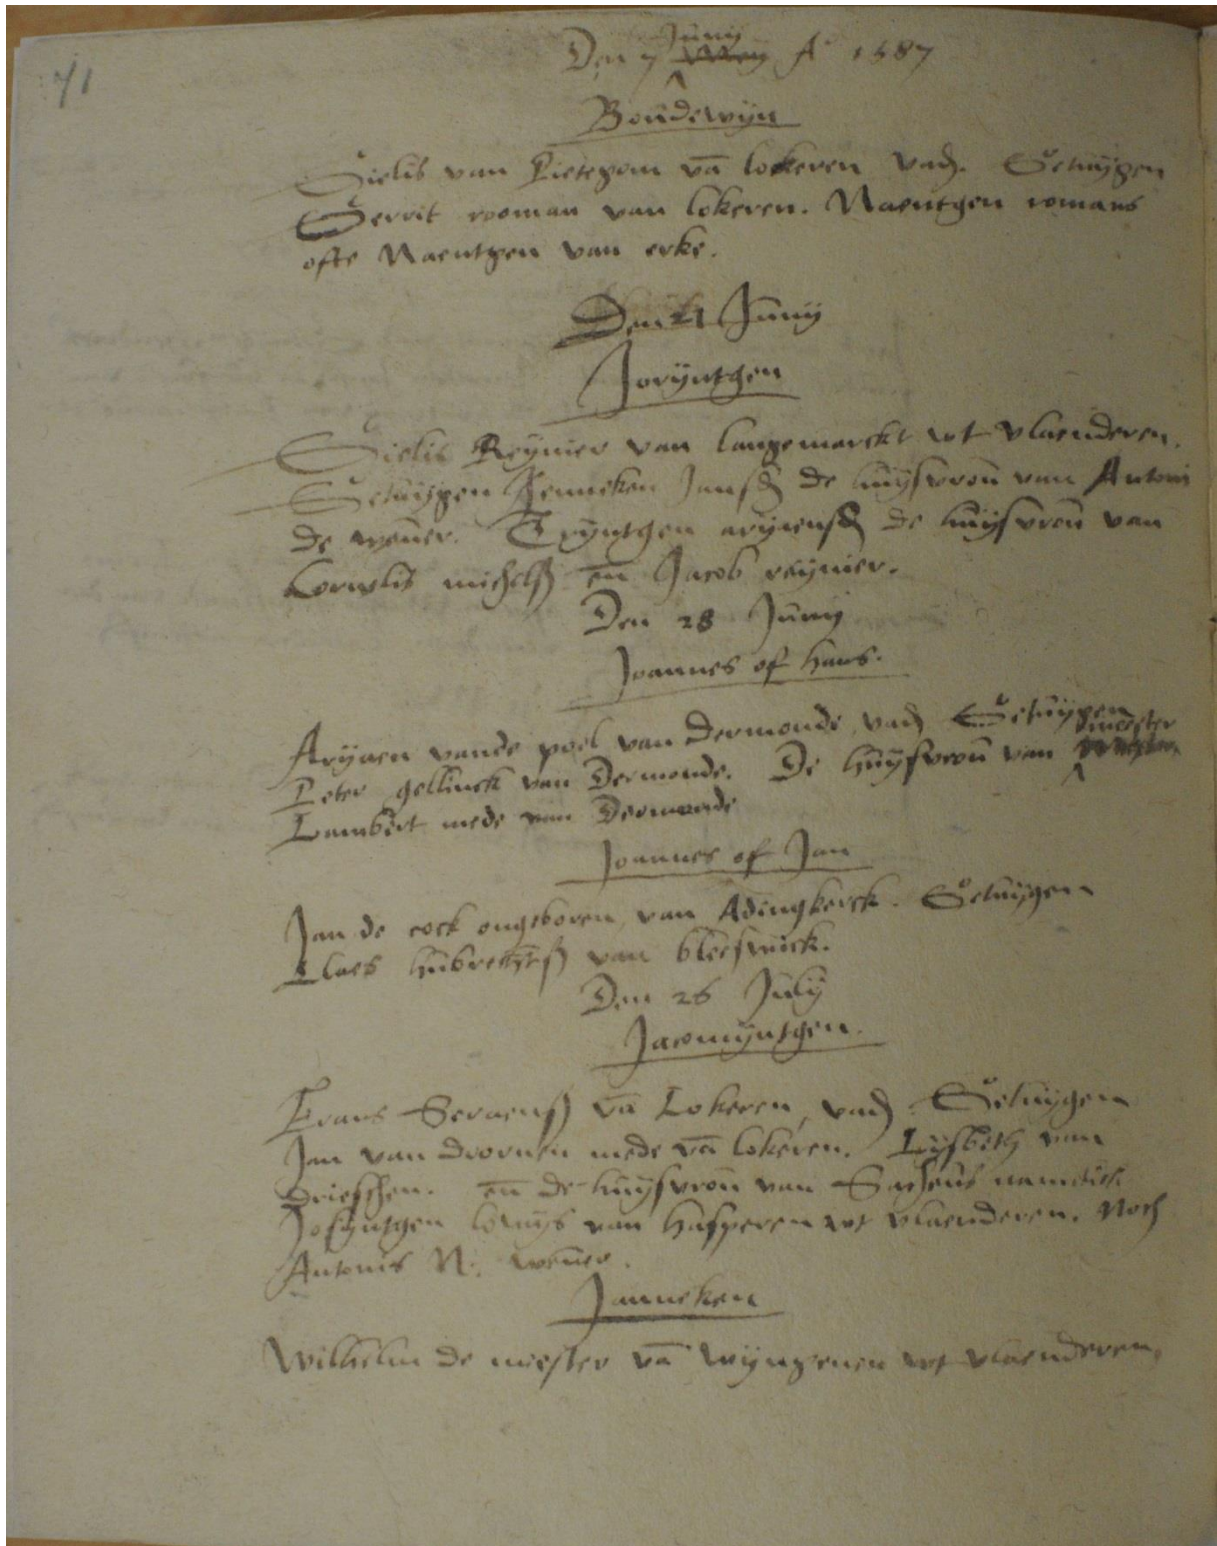 71
Junij
Den 7 Mey Aº 1587
Boudewijn
Gielis van Pietegom vā lokeren vad. Getuijgen
Gerrit rooman van lokeren. Naentgen romans
ofte Naentgen van erke.
Den 21 Junij
Jorijntgen
Gielis Reynier van langemarckt wt vlaenderen.
Getuijgen Jenneken Jansd de huijsvrou van Antoni
de wever. Trijntgen arijaensd de huijsvrou van
Cornelis michels en Jacob reijnier.
Den 28 Junij
Joannes of hans.
Arijaen vande poel van dermonde, vad Getuijgen
Peter gellinck van Dermonde. De huijsvrou van meester
Lambert mede van Dermonde
Joannes of Jan
Jan de cock ongeboren, van Adingkerck. Getuijgen
Claes hubrechts van bleeswick.
Den 26 Julij
Jacomijntgen.
Frans Seraens vā Lokeren, vad Getuijgen
Jan van doornen mede vā lokeren. Lijsbeth van
driesschen. en de huijsvrou van namelick
Josijntgen lowijs van hasperen wt vlaenderen. Noch
Antonis N. wever.
Janneken
Wilhelm de meester vā wijngenen wt vlaenderen,